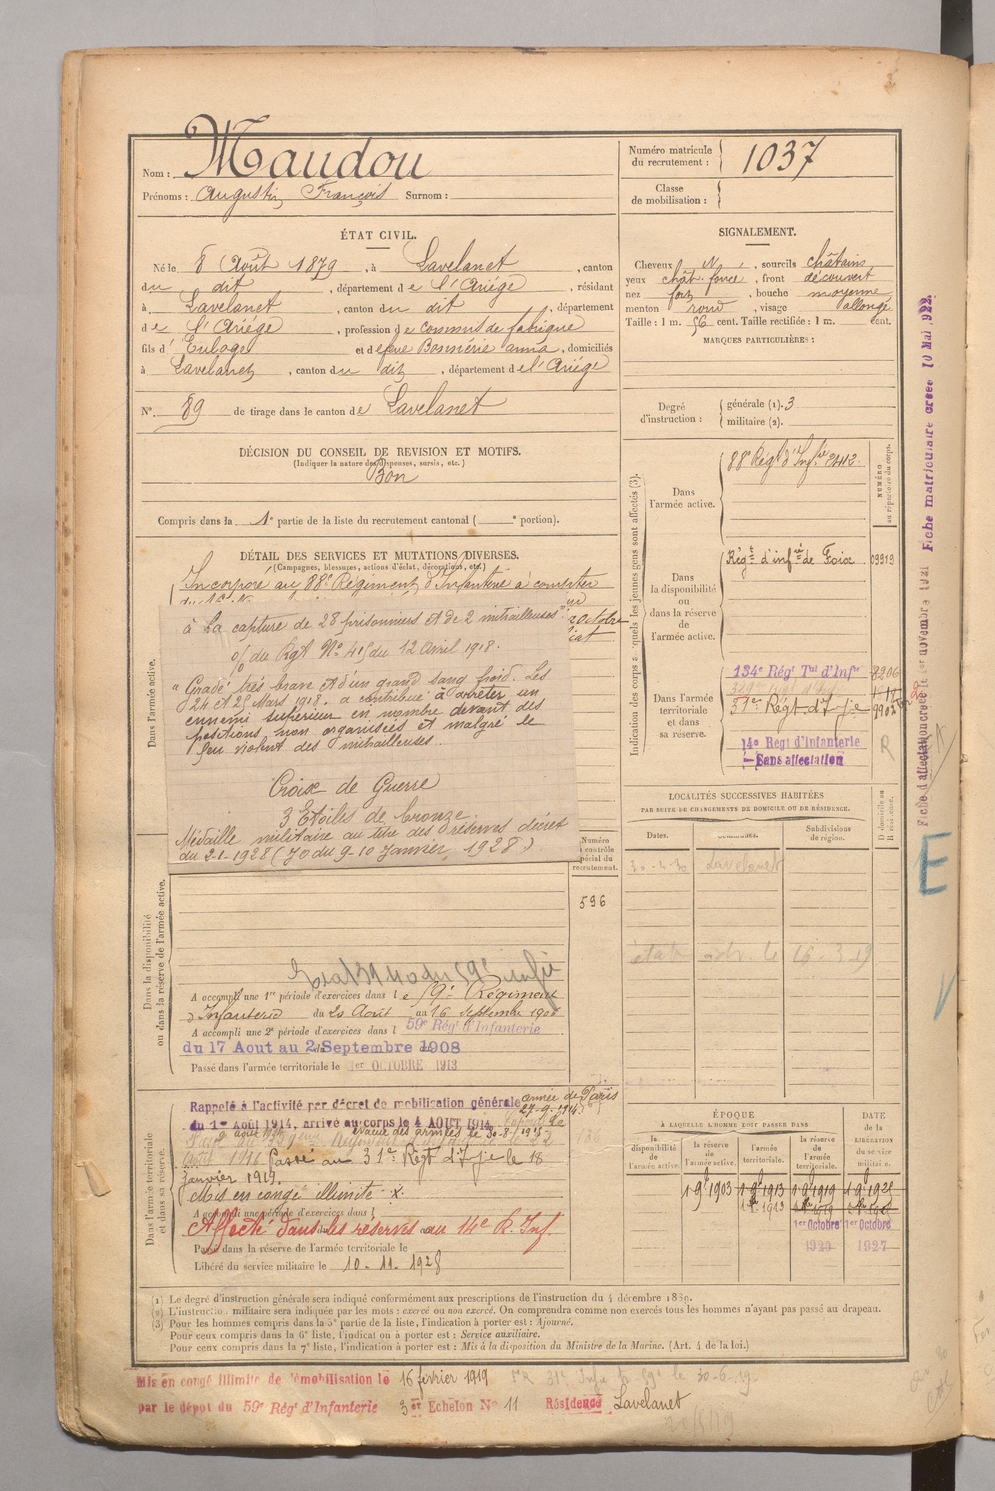 Nom : Maudou
Prénoms : Augustin François Surnom :
Numéro matricule du recrutement : 1037
Classe de mobilisation :
ÉTAT CIVIL.
Né le 8 Août 1879, à Lavelanet, canton
du dit, département de l'Ariége, résidant
à Lavelanet, canton du dit, département
de l'Ariége, profession de commis de fabrique
fils d'Euloge et de feue Bonnérie anna, domiciliés
à Lavelanet, canton du dit, département de l'Ariége
N° 89 de tirage dans le canton de Lavelanet
SIGNALEMENT.
Cheveux N, sourcils châtains
yeux chât. foncé, front découvert
nez fort, bouche moyenne,
menton rond, visage allongé
Taille : 1 m. 56 cent. Taille rectifiée : 1 m. cent.
MARQUES PARTICULIÈRES :
Degré d'instruction : générale (1). 3
militaire (2).
DÉCISION DU CONSEIL DE REVISION ET MOTIFS.
(Indiquer la nature des dispenses, sursis, etc.)
Bon
Compris dans la 1e partie de la liste du recrutement cantonal ( e portion).
DÉTAIL DES SERVICES ET MUTATIONS DIVERSES.
(Campagnes, blessures, actions d'éclat, décorations, etc.)
Dans l'armée active.
Incorporé au 88e Régiment d'Infanterie à compter
à la capture de 28 prisonniers et de 2 mitrailleuses"
o/ du Rgt N° 415 du 12 Avril 1918.
"Gradé très brave et d'un grand sang froid. Les
24 et 25 Mars 1918. a contribué à arrêter un
ennemi supérieur en nombre devant des
positions non organisées et malgré le
feu violent des mitrailleuses.
Croix de Guerre
3 Etoiles de bronze.
Médaille militaire au titre des réserves décret
du 2-1-1928 (JO du 9-10 Janvier 1928).
Indication des corps auxquels les jeunes gens sont affectés (3).
NUMÉRO au répertoire du corps.
Dans l'armée active.
88e Régt d'Infie 2412.
Dans la disponibilité ou dans la réserve de l'armée active.
Régt d'infie de Foix 09919
Dans l'armée territoriale et dans sa réserve.
134e Régt Tal d'Infie
31e Régt d'Infie
14e Régt d'Infanterie
Sans affectation
R
LOCALITÉS SUCCESSIVES HABITÉES
PAR SUITE DE CHANGEMENTS DE DOMICILE OU DE RÉSIDENCE.
Dates.
Communes.
Subdivisions de région.
D domicile ou R résidence.
Lavelanet
Numéro au contrôle spécial du recrutement.
596
Dans la disponibilité ou dans la réserve de l'armée active.
A accompli une 1re période d'exercices dans le 59e Régiment
d'Infanterie du 20 Août au 16 Septembre 1906
A accompli une 2e période d'exercices dans l 59e Régt d'Infanterie
du 17 Aout au 2 Septembre 1908
Passé dans l'armée territoriale le 1er OCTOBRE 1913
Dans l'armée territoriale et dans sa réserve.
Rappelé à l'activité par décret de mobilisation générale armée de Paris
27-9-1914
du 1er Août 1914, arrivé au corps le 4 AOUT 1914
évacué des armées le 30-8-1915
Passé au 31e Régt d'Infie le 18
Janvier 1919.
Mis en congé illimité x.
A accompli une période d'exercices dans l
Affecté dans les réserves au 14e R. Inf.
Passé dans la réserve de l'armée territoriale le
Libéré du service militaire le 10-11-1928
ÉPOQUE
A LAQUELLE L'HOMME DOIT PASSER DANS
DATE de la LIBÉRATION du service militaire.
la disponibilité de l'armée active.
la réserve de l'armée active.
l'armée territoriale.
la réserve de l'armée territoriale.
1 9bre 1903 1 9bre 1913 1 9bre 1919 1 9bre 1925
1er Octobre 1er Octobre
1920 1927
(1) Le degré d'instruction générale sera indiqué conformément aux prescriptions de l'instruction du 4 décembre 1889.
(2) L'instruction militaire sera indiquée par les mots : exercé ou non exercé. On comprendra comme non exercés tous les hommes n'ayant pas passé au drapeau.
(3) Pour les hommes compris dans la 5e partie de la liste, l'indication à porter est : Ajourné.
Pour ceux compris dans la 6e liste, l'indication à porter est : Service auxiliaire.
Pour ceux compris dans la 7e liste, l'indication à porter est : Mis à la disposition du Ministre de la Marine. (Art. 4 de la loi.)
Mis en congé illimité de démobilisation le 16 février 1919
par le dépôt du 59e Régt d'Infanterie 3er Echelon N° 11 Résidence Lavelanet
Fiche d'affectation créée le 1er novembre 1921 Fiche matriculaire créée 10 Mai 1922.
E